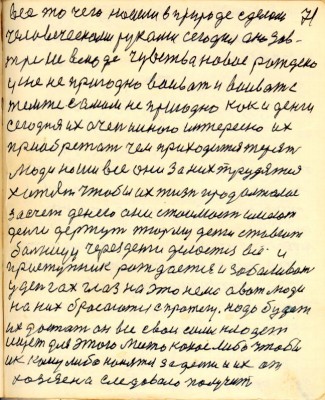 все то чего нашли в природе сделали 71
человеческими руками сегодня оно зав-
тре не в моде чувства новое рождено
уже не пригодно воиват и воиват с
тем же самим не пригодно как и денги
сегодня их очен много интересно их
приобретат чем приходится терят
люди наши все они за них трудятся
хотят чтобы их жизн продолжалас
за счет денег они стоимост имеют
денги держут тюрму денги ставеют
болницу через денги делоется всё и
приступник рождается и заболиват
у денгах глаз на это нема а вот люди
на них бросаются с протягу. надо будет
их достат он все свои сили кладет
ищет для этого место какое либо чтобы
их кому либо понятя за дети и их от
хозяена следовало получит